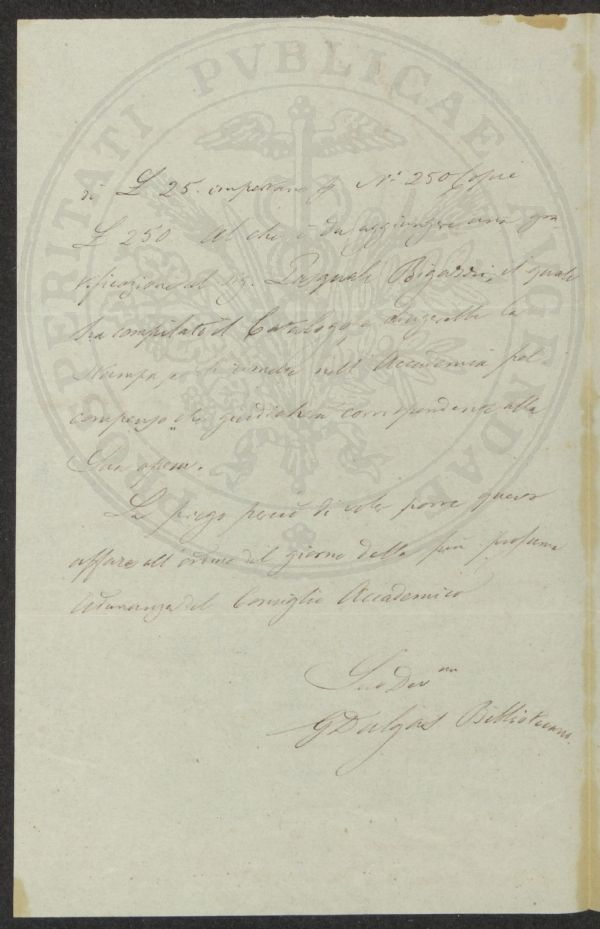 PROSPERITATI PVBLICAE AVGENDAE
di £ 25. importano p N.° 250 Copie
£ 250 al che è da aggiungere una gra
tificazione al Sig. Pasquale Bigazzi, il quale
ha compilato il Catalogo e la
Stampa nell Accademia pel
compenso che giudicherà corrispondente alla
Sua opera.
La prego perciò di voler porre questo
affare all ordine del giorno della più prossima
Adunanza del Consiglio Accademico
Suo Dev.mo
G Dalgas Bibliotecario.